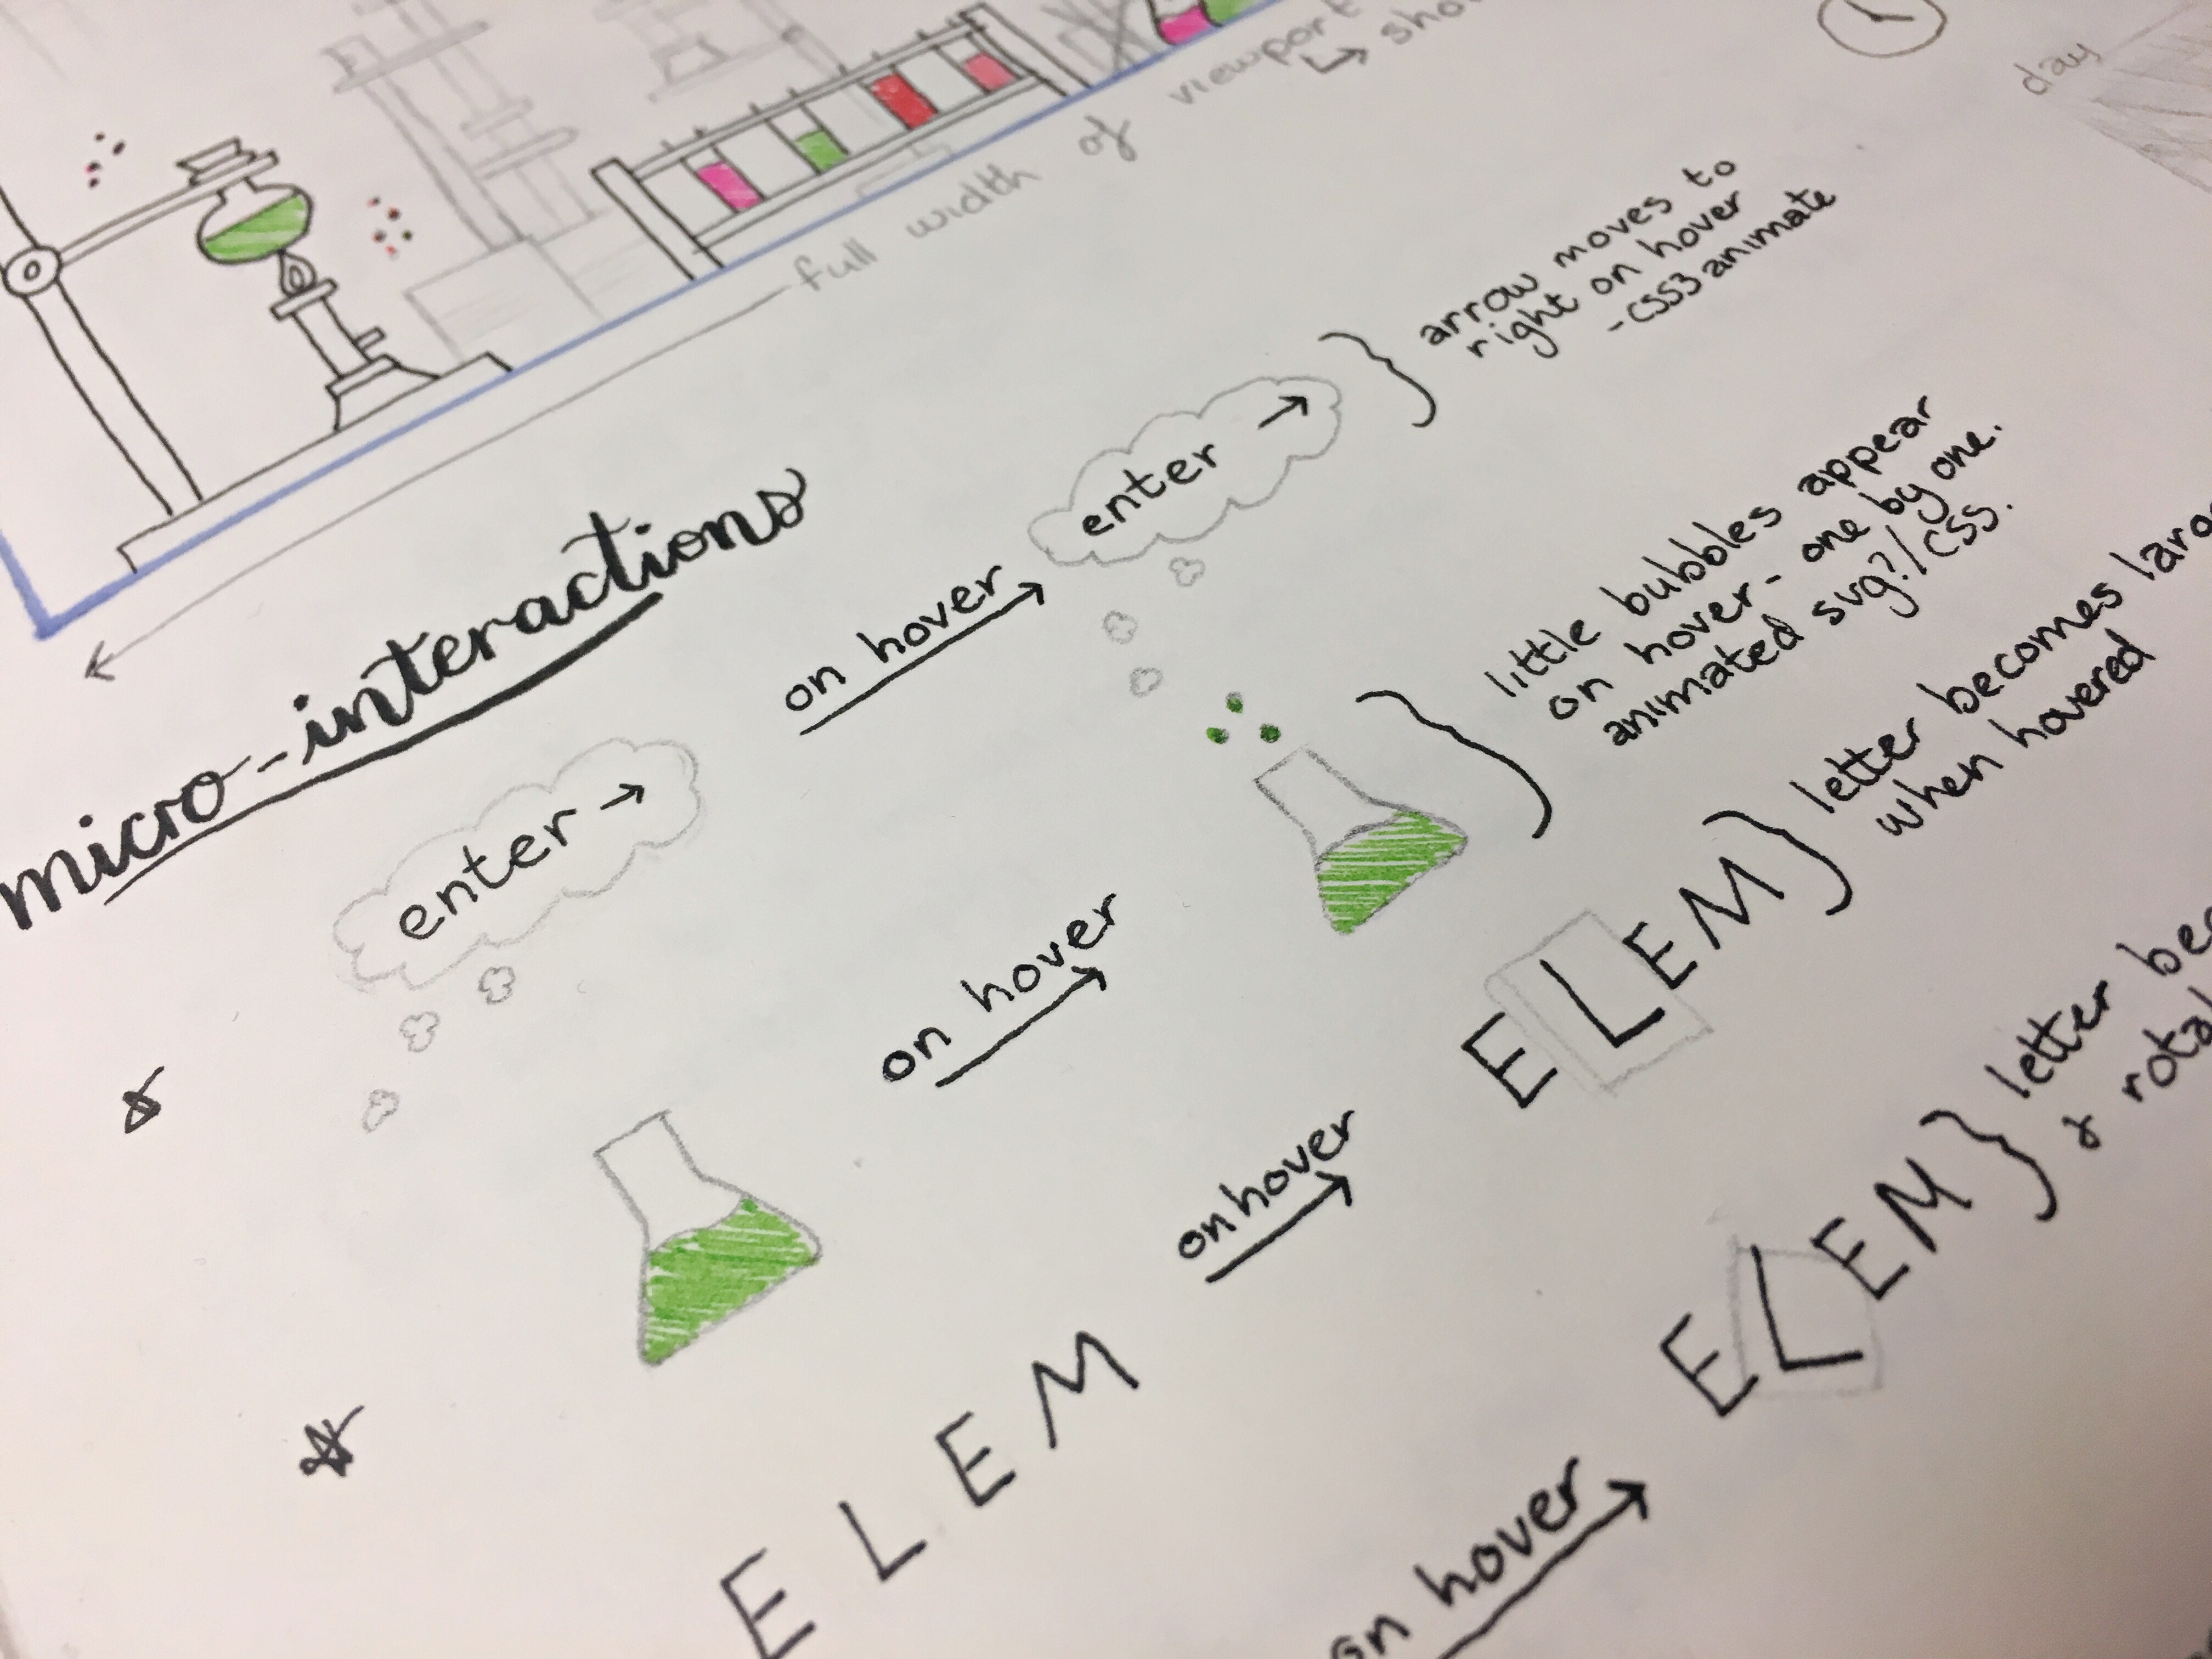 full width of viewport
day
micro-interactions
enter →
on hover
enter →
arrow moves to
right on hover
- CSS3 animate
on hover
little bubbles appear
on hover - one by one.
animated svg?/css.
E L E M
on hover
E L E M
letter becomes
when hovered
on hover
E L E M
letter
&